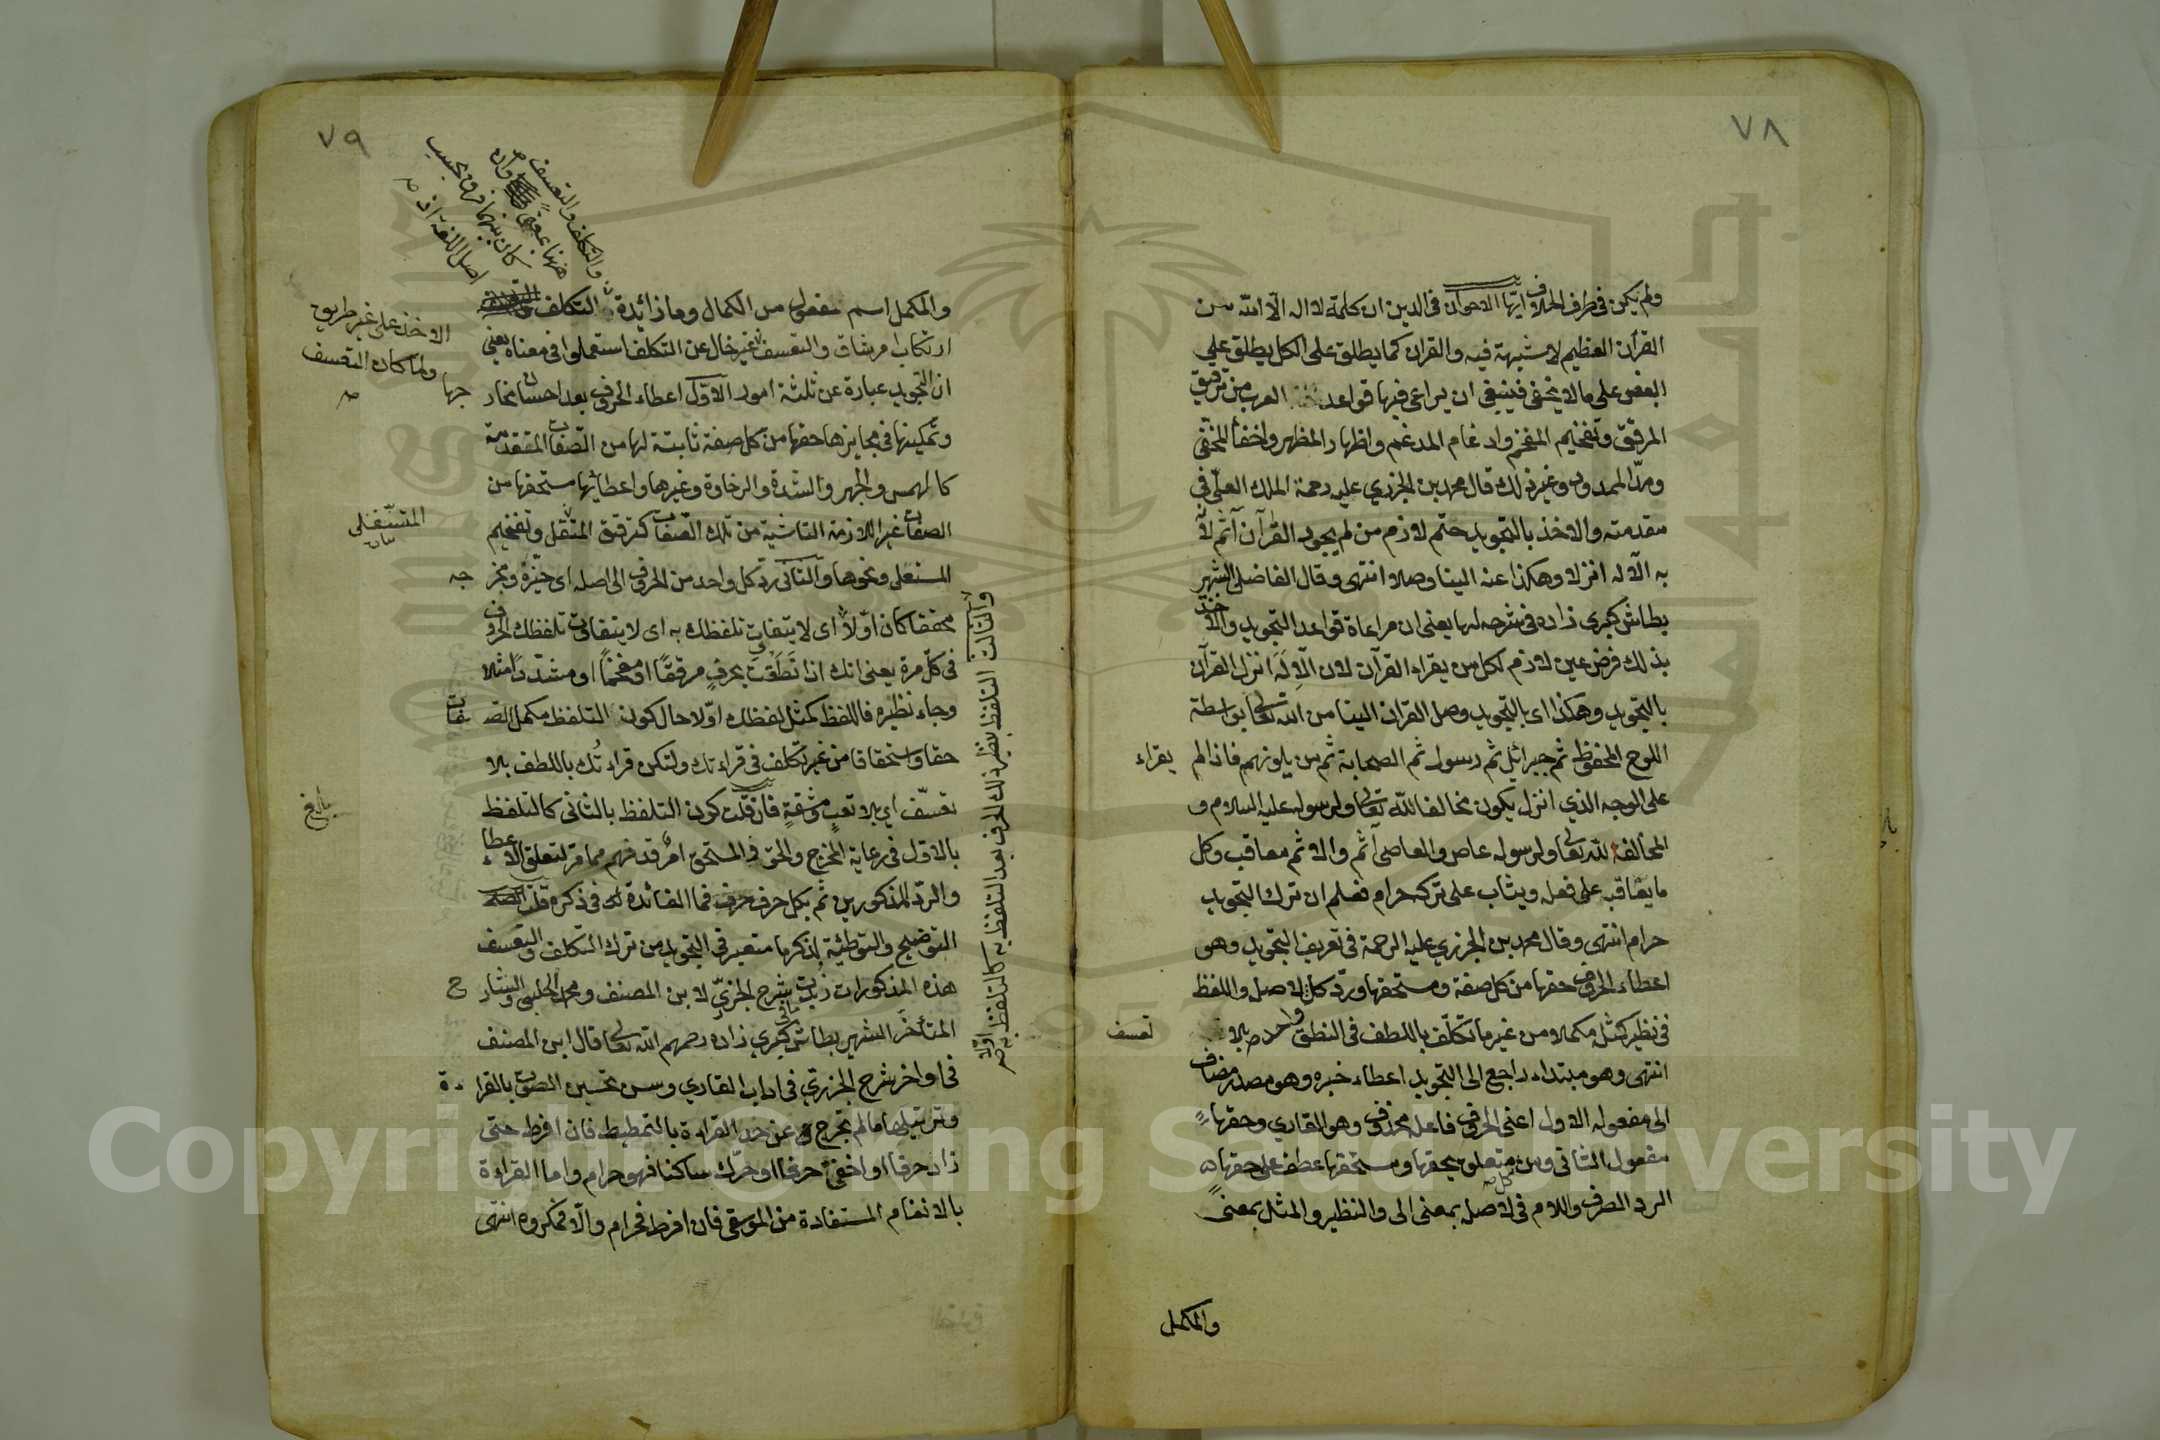 ٧٨
ولم يكن في طرف الخلاف ايها الاخوان في الدين ان كلمة لا اله الا الله من
القرآن العظيم لا شبهة فيه والقران كما يطلق على الكل يطلق علي
البعض على ما لا يخفى فينبغى ان يراعى فيها قواعد العرب من ترقيق
المرقق وتفخيم المفخم وادغام المدغم واظهار المظهر واخفأ المخفى
ومد الممدود وغير ذلك قال محمد بن الجزري عليه رحمة الملك العلي في
مقدمته والاخذ بالتجويد حتم لازم من لم يجود القرآن آثم لانه
به الاله انزلا وهكذا عنه الينا وصلا انتهى وقال الفاضل الشهير
بطاش كبرى زاده في شرحه لها يعنى ان مراعاة قواعد التجويد والاخذ
بذلك فرض عين لازم لكل من يقراء القرآن لان الاله انزل القرآن
بالتجويد وهكذا اى بالتجويد وصل القران الينا من الله تعالى بواسطة
اللوح المحفوظ ثم جبرائيل ثم رسوله ثم الصحابة ثم من يلونهم فاذا لم يقراء
على الوجه الذي انزل يكون مخالفا لله تعالى ولرسوله عليه السلام و
المخالفة لله تعالى ولرسوله عاص والعاصي آثم والاثم معاقب وكل
ما يعاقب على فعله ويثاب على تركه حرام فعلم ان ترك التجويد
حرام انتهى وقال محمد بن الجزري عليه الرحمة في تعريف التجويد وهو
اعطاء الحروف حقها من كل صفة ومستحقها ورد كل لاصله واللفظ
في نظيره كمثله مكملا من غير ما تكلف باللطف في النطق بلا تعسف
انتهى وهو مبتداء راجع الى التجويد اعطاء خبره وهو مصدر مضاف
الى مفعوله الاول اعنى الحروف فاعله محذوف وهو القاري وحقها
مفعوله الثاني ومن متعلق بحقها ومستحقها عطف على حقها
الرد الصرف واللام في لاصله بمعنى الى والنظير والمثل بمعنى
والمكمل
٧٩
والتكلف والتعسف
ههنا بمعنى وان
كان بينهما فرق بحسب
اصل اللغة اذ
والمكمل اسم مفعول من الكمال وما زائدة التكلف
الاخذ على غير طريق
ولما كان التعسف
ارتكاب امر شاق والتعسف غير خال عن التكلف استعملوا في معناه يعنى
ان التجويد عبارة عن ثلثة امور الاول اعطاء الحروف بعد احسان مخارجها
وتمكينها في محايزها حقها من كل صفة ثابتة لها من الصفات المتقدمة
كالهمس والجهر والشدة والرخاوة وغيرها واعطائها مستحقها من
الصفات غير اللازمة الناشية من تلك الصفات كترقيق وتفخيم
المستعلى ونحوها والثاني رد كل واحد من الحروف الى اصله اى حيزه ومخرجه
محققا كان اولا اى لا يتفاوت تلفظك به اى لا يتفاوت تلفظك الحروف
في كل مرة يعنى انك اذا نطقت بحرف مرققا او مفخما او مشددا مثلا
وجاء نظيره فاللفظ كمثل لفظك اولا حال كون التلفظ مكمل الصفات
حقا واستحقاقا من غير تكلف في قراءتك ولتكن قراءتك باللطف بلا
تعسف اي بلا تعب ومشقة فان قلت كون التلفظ بالثاني كالتلفظ
بالاول في رعاية المخرج والحق والمستحق امر قد فهم مما مر لتعلق الاعطاء
والرد المذكورين ثم بكل حرف حرف فما الفائدة في ذكره قلت
التوضيح والتوطئة لذكر ما معتبر في التجويد من ترك التكلف والتعسف
هذه المذكورات زبدت شرح الجزري لابن المصنف ومحمد الحلبي والشارح
المتأخر الشهير بطاش كبري زاده رحمهم الله تعالى قال ابن المصنف
في اواخر شرح الجزري في اداب القاري وسن تحسين الصوت بالقراءة
وترتيلها ما لم تخرج عن حد القراءة بالتمطيط فان افرط حتى
زاد حرفا او اخفى حرفا او حرك ساكنا فهو حرام واما القراءة
بالانغام المستفادة من الموسقى فان افرط فحرام والا فمكروه انتهى
والثالث التلفظ بنظير ذلك الحرف بعد التلفظ به كالتلفظ به اولا
Copyright © King Saud University